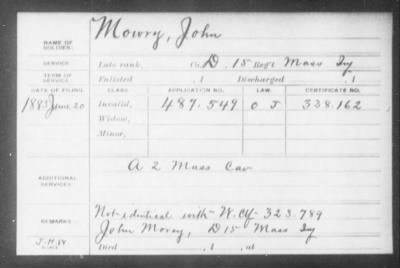 Mowry, John
NAME OF SOLDIER:
SERVICE: Late rank, Co. D, 15 Reg't Mass Inf
TERM OF SERVICE: Enlisted , 1 Discharged , 1
DATE OF FILING. CLASS. APPLICATION NO. LAW. CERTIFICATE NO.
1883 June 20 Invalid, 487.549 338.162
Widow,
Minor,
A 2 Mass Cav
ADDITIONAL SERVICES:
Not identical with W. Ctf. 323.789
REMARKS: John Morey, D 15 Mass Inf
Died , 1 , at